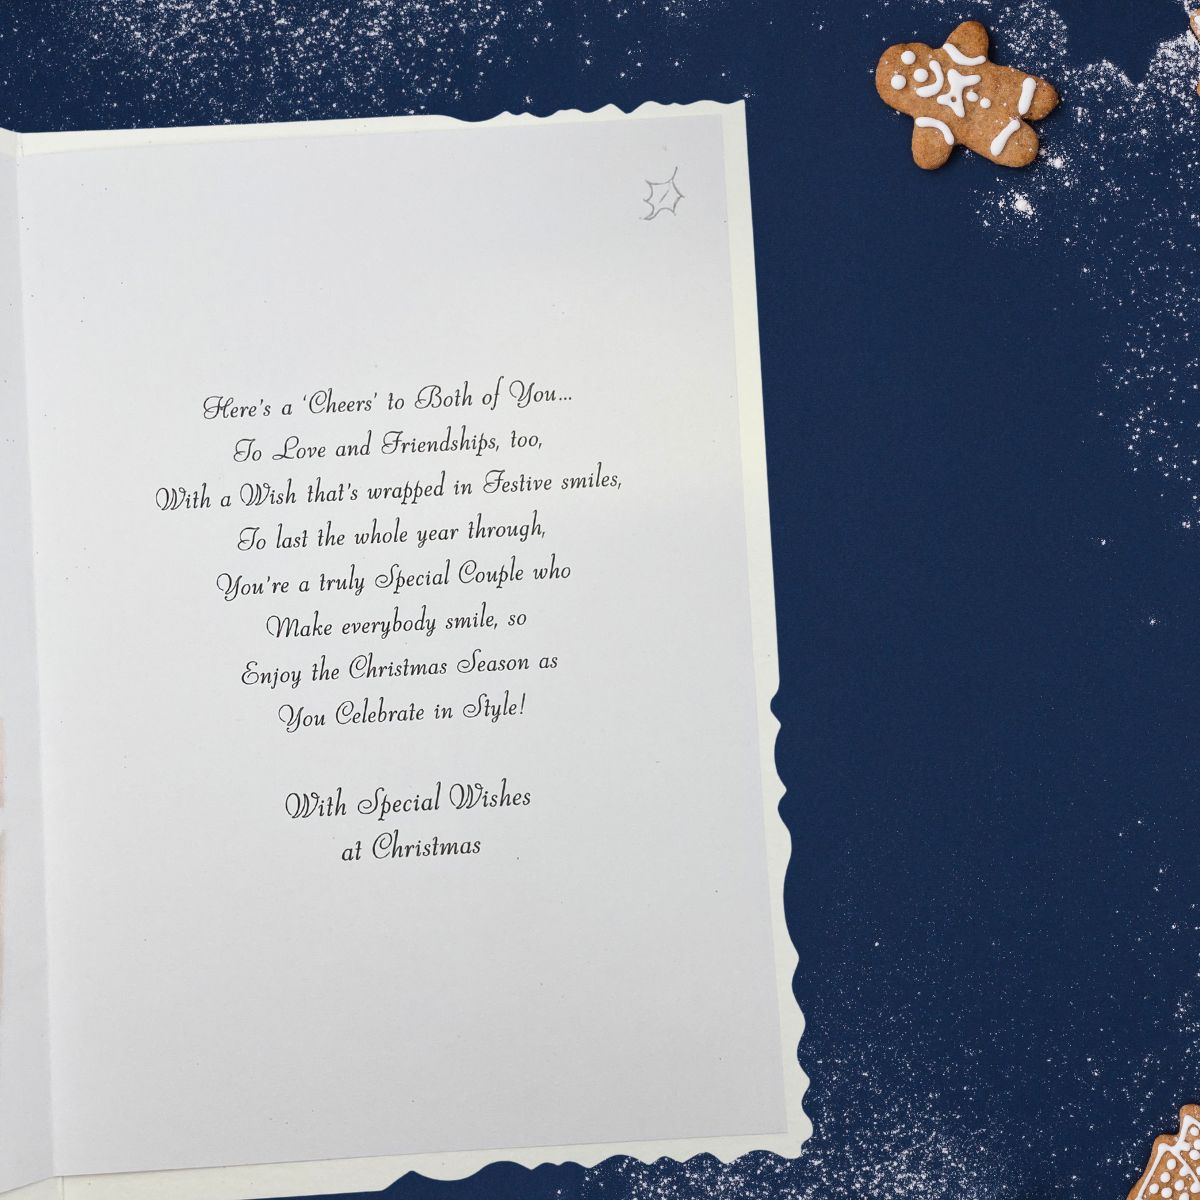 Here's a 'Cheers' to Both of You...
To Love and Friendships, too,
With a Wish that's wrapped in Festive smiles,
To last the whole year through,
You're a truly Special Couple who
Make everybody smile, so
Enjoy the Christmas Season as
You Celebrate in Style!
With Special Wishes
at Christmas